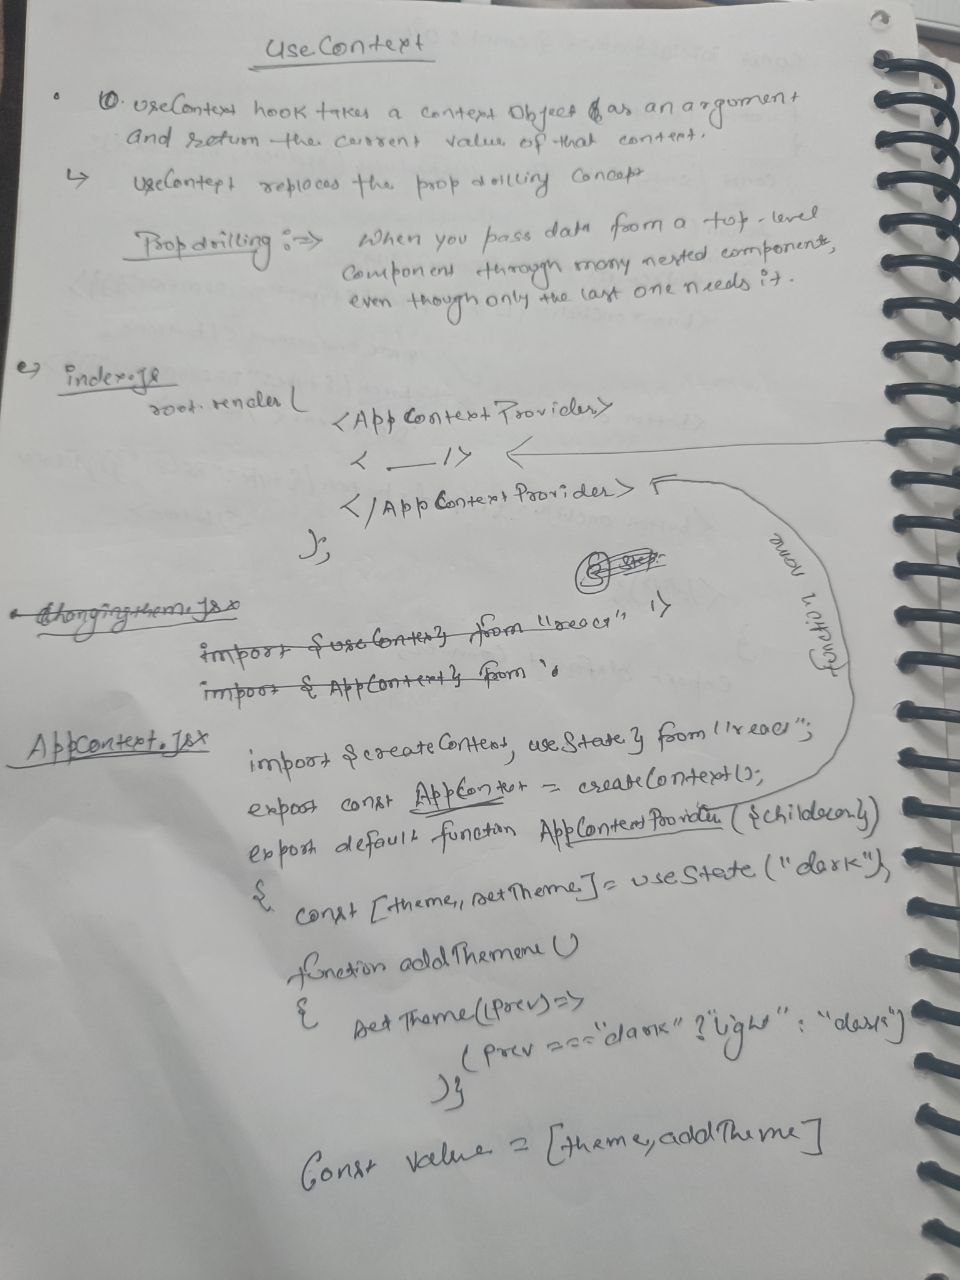 useContext
①. useContext hook takes a context Object as an argument
and return the current value of that context.
↳ useContext replaces the prop drilling Concept
Prop drilling :⇒ When you pass data from a top-level
Component through many nested components,
even though only the last one needs it.
index.js
root.render(
<AppContextProvider>
< __ />
</AppContextProvider>
);
function name
Step:
Changingthem.jsx
import {useContex} from "react" />
import { AppContext} from '
AppContext.jsx
import {createContext, useState} from "react";
export const AppContext = createContext();
export default function AppContextProvider ({children})
{
const [theme, setTheme] = useState ("dark");
function addThemene ()
{
setTheme((prev) =>
(prev === "dark" ? "light" : "dark")
)}
Const value = [theme, addTheme]